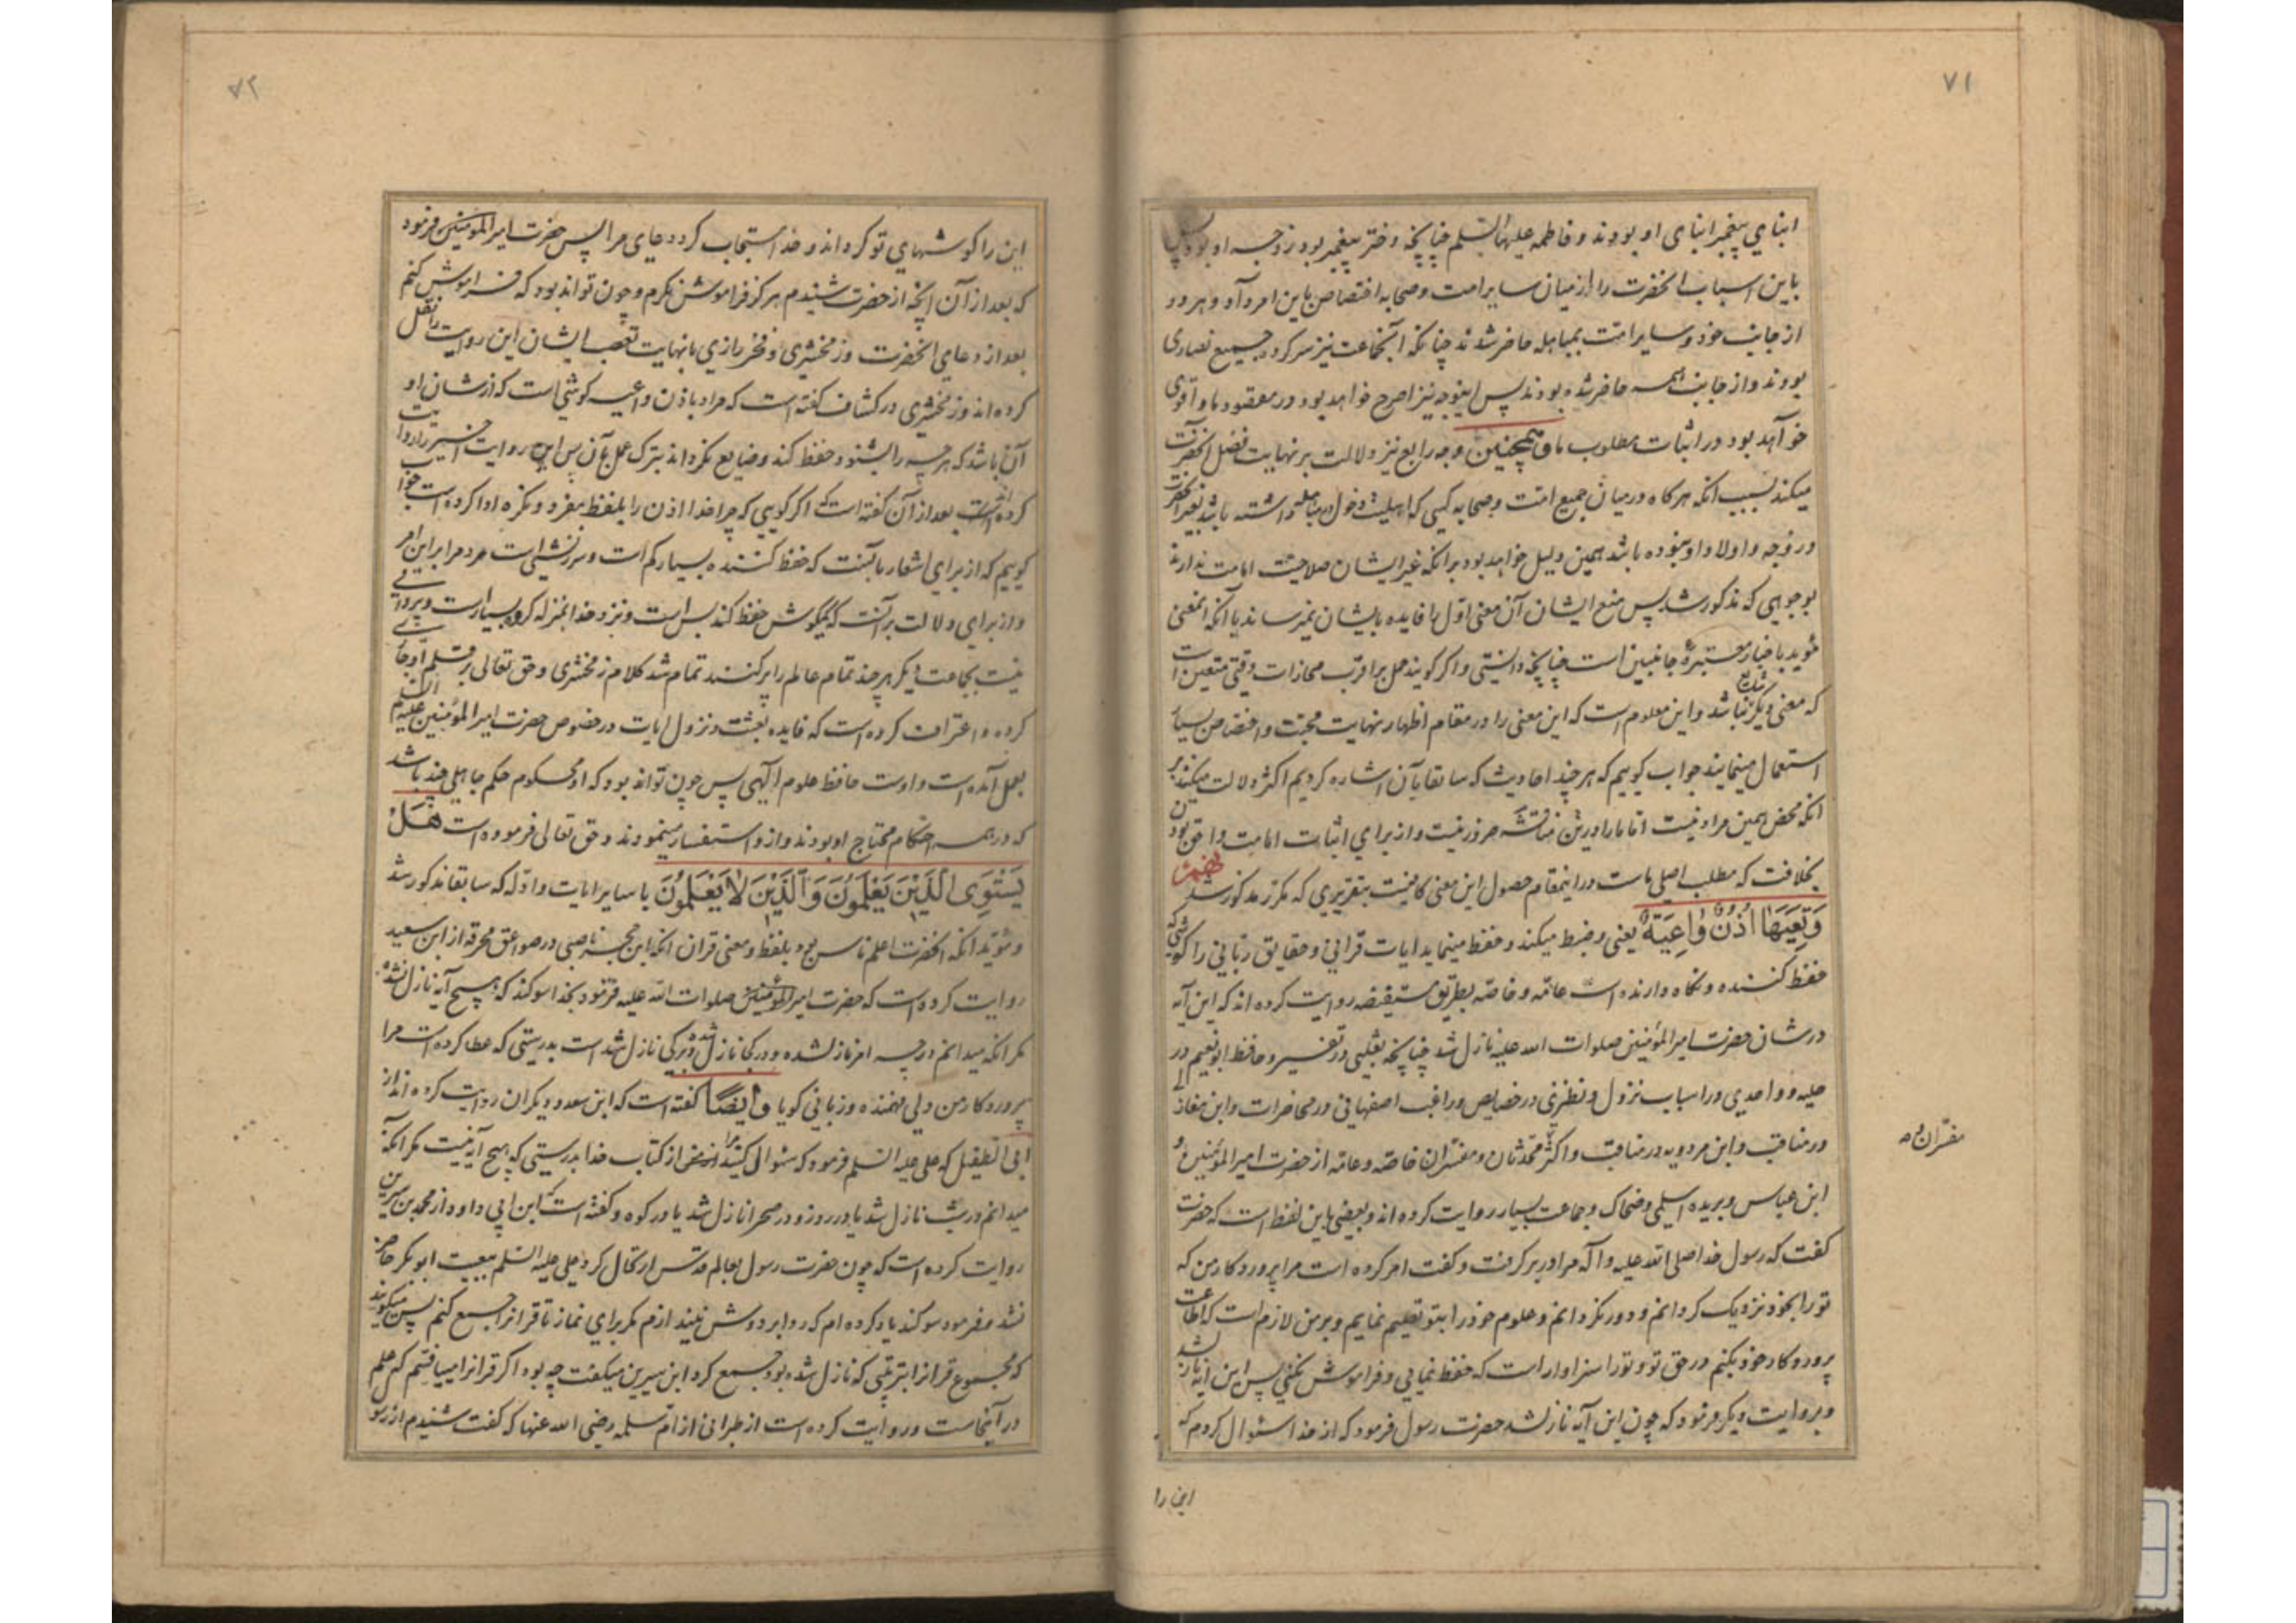 ۷۱
ابنای پیغمبر ابنای او بودند و فاطمه علیها السلم چنانچه دختر پیغمبر بود زوجه او بود پس
باین اسباب آنحضرت را از میان سایر امت و صحابه اختصاص باین امر داد و هر دو
از جانب خود و سایر امت بمباهله حاضر شدند چنانکه آنجماعت نیز سر کرده جمیع نصاری
بودند و از جانب همه حاضر شده بودند پس اینوجه نیز اصرح خواهد بود در مقصود ما و اقوی
خواهد بود در اثبات مطلوب ما و همچنین وجه رابع نیز دلالت بر نهایت فضل آنحضرت
میکند بسبب آنکه هرگاه در میان جمیع امت و صحابه کسی که اهلیت دخول در مباهله داشته باشد بغیر آنحضرت
و زوجه و اولاد او نبوده باشد همین دلیل خواهد بود بر آنکه غیر ایشان صلاحیت امامت ندارند
بوجوهی که مذکور شد پس منع ایشان آن معنی اول را فایده بایشان نمیرساند با آنکه آنمعنی
مؤید باخبار معتبره جانبین است چنانچه دانستی و اگر گویند حمل بر اقرب مجازات وقتی متعین است
که معنی دیگر شایع نباشد و این معلوم است که این معنی را در مقام اظهار نهایت محبت و اختصاص بسیار
استعمال مینمایند جواب گوییم که هر چند احادیث که سابقا بآن اشاره کردیم اکثر دلالت میکند بر
آنکه محض همین مراد نیست اما ما را درین مناقشه ضرور نیست و از برای اثبات امامت و احق بودن
بخلافت که مطلب اصلی ماست در اینمقام حصول این معنی کافیست بتقریری که مکرر مذکور شد هفتم
وَتَعِیَهَا اُذُنٌ وَاعِیَةٌ یعنی و ضبط میکند و حفظ مینماید آیات قرانی و حقایق ربانی را گوشی که
حفظ کننده و نگاه دارنده است عامه و خاصه بطریق مستفیضه روایت کرده اند که این آیه
در شان حضرت امیر المؤمنین صلوات الله علیه نازل شد چنانچه ثعلبی در تفسیر و حافظ ابو نعیم در
حلیه و واحدی در اسباب نزول و نطنزی در خصایص و راغب اصفهانی در محاضرات و ابن مغازلی
در مناقب و ابن مردویه در مناقب و اکثر محدثان و مفسران خاصه و عامه از حضرت امیر المؤمنین و
مفسران
ابن عباس و بریده اسلمی و ضحاک و جماعت بسیار روایت کرده اند و بعضی باین لفظ است که حضرت
گفت که رسول خدا صلی الله علیه و آله مرا در بر گرفت و گفت امر کرده است مرا پروردگار من که
تو را بخود نزدیک گردانم و دور نگردانم و علوم خود را بتو تعلیم نمایم و بر من لازم است که اطاعت
پروردگار خود بکنم در حق تو و تو را سزاوار است که حفظ نمایی و فراموش نکنی پس این آیه نازل شد
و بروایت دیگر فرمود که چون این آیه نازل شد حضرت رسول فرمود که از خدا سئوال کردم که
این را
۷۲
این را گوشهای تو گرداند و خدا مستجاب کرد دعای مرا پس حضرت امیر المؤمنین فرمود
که بعد از آن آنچه از حضرت شنیدم هرگز فراموش نکردم و چون تواند بود که فراموش کنم
بعد از دعای آنحضرت و زمخشری و فخر رازی با نهایت تعصب ایشان این روایت را نقل
کرده اند و زمخشری در کشاف گفته است که مراد باذن واعیه گوشی است که از شان او
آن باشد که هر چه را بشنود حفظ کند و ضایع نگرداند بترک عمل بآن پس این روایت اخیر را روایت
کرده است بعد از آن گفته است که اگر گویی که چرا خدا اذن را بلفظ مفرد و نکره ادا کرده است جواب
گوییم که از برای اشعار بآنست که حفظ کننده بسیار کم است و سرزنشی است مردم را بر این امر
و از برای دلالت بر آنست که یکگوش حفظ کند بس است و نزد خدا بمنزله گروه بسیار است و پروایی
نیست بجماعت دیگر هر چند تمام عالم را پر کنند تمام شد کلام زمخشری و حق تعالی بر قلم او جاری
کرده و اعتراف کرده است که فایده بعثت و نزول آیات در خصوص حضرت امیر المؤمنین علیه السلم
بعمل آمده است و اوست حافظ علوم الهی پس چون تواند بود که او محکوم حکم جاهلی چند باشد
که در همه احکام محتاج او بودند و از او استفسار مینمودند و حق تعالی فرموده است هَلْ
یَسْتَوِی الَّذِیْنَ یَعْلَمُوْنَ وَالَّذِیْنَ لَا یَعْلَمُوْنَ با سایر آیات و ادله که سابقا مذکور شد
و مؤید آنکه آنحضرت اعلم ناس بود بلفظ و معنی قران آنکه ابن حجر ناصبی در صواعق محرقه از ابن سعید
روایت کرده است که حضرت امیر المؤمنین صلوات الله علیه فرمود بخدا سوگند که هیچ آیه نازل نشده
مگر آنکه میدانم در چه امر نازل شده و در کجا نازل شده و بر کی نازل شد است بدرستی که عطا کرده است مرا
پروردگار من دلی فهمنده و زبانی گویا و ایضًا گفته است که ابن سعد و دیگران روایت کرده اند از
ابی الطفیل که علی علیه السلم فرمود که سئوال کنید مرا از کتاب خدا بدرستی که هیچ آیه نیست مگر آنکه
میدانم در شب نازل شد یا در روز و در صحرا نازل شد یا در کوه و گفته است که ابن ابی داود از محمد بن سیرین
روایت کرده است که چون حضرت رسول بعالم قدس ارتحال کرد علی علیه السلم ببیعت ابو بکر حاضر
نشد و فرمود سوگند یاد کرده ام که ردا بر دوش نیندازم مگر برای نماز تا قرانرا جمع کنم پس میگویند
که مجموع قرانرا بترتیبی که نازل شده بود جمع کرد ابن سیرین میگفت چه بود اگر قرانرا مییافتم که علم
در آنجاست و روایت کرده است از طبرانی از ام سلمه رضی الله عنها که گفت شنیدم از رسو